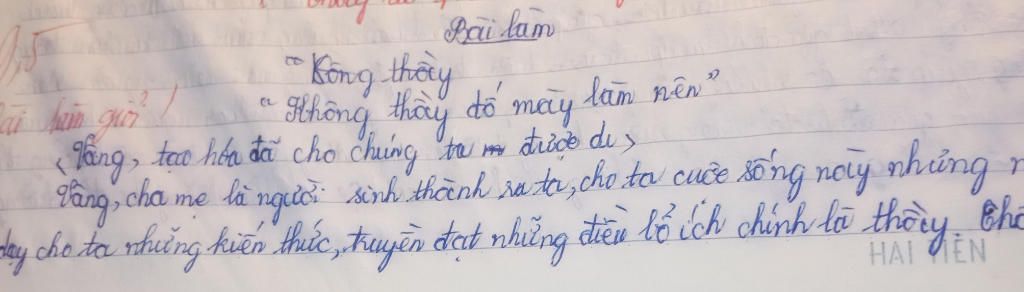 Bài làm
9,5
"Kông thầy
"Không thầy đố mày làm nên"
Bài làm giỏi!
<Vâng, tạo hóa đã cho chúng ta được du>
Vâng, cha mẹ là người sinh thành ra ta, cho ta cuộc sống này nhưng
dạy cho ta những kiến thức, truyền đạt những điều bổ ích chính là thầy.
HẢI TIẾN